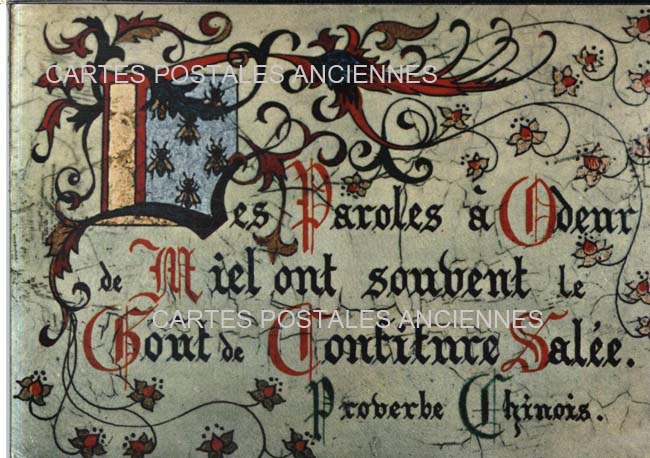 CARTES POSTALES ANCIENNES
Les Paroles à Odeur
de Miel ont souvent le
CARTES POSTALES ANCIENNES
Goût de Confiture Salée.
Proverbe Chinois.